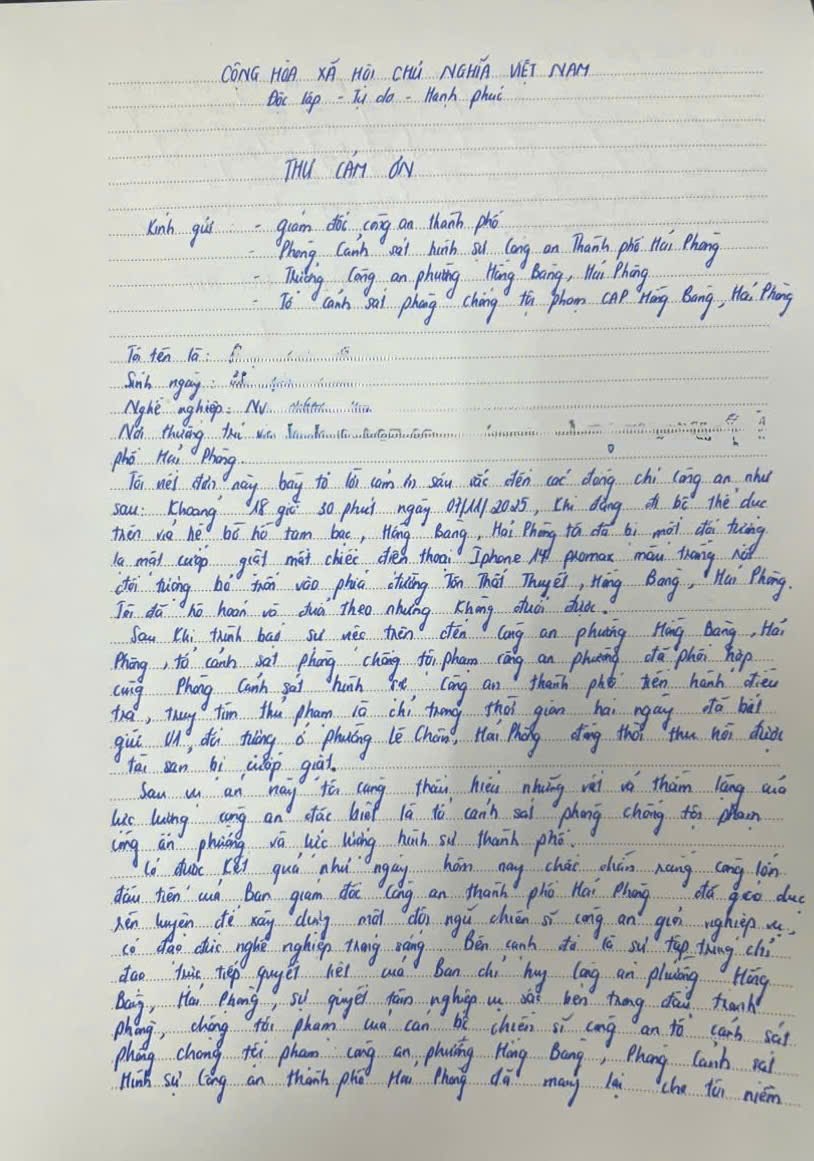 CỘNG HÒA XÃ HỘI CHỦ NGHĨA VIỆT NAM
Độc lập - Tự do - Hạnh phúc
THƯ CẢM ƠN
Kính gửi : - giám đốc công an thành phố
- Phòng Cảnh sát hình sự Công an Thành phố Hải Phòng
- Trưởng Công an phường Hồng Bàng, Hải Phòng
- Tổ cảnh sát phòng chống tội phạm CAP Hồng Bàng, Hải Phòng
Tôi tên là :
Sinh ngày :
Nghề nghiệp : NV
Nơi thường trú
phố Hải Phòng.
Tôi viết đơn này bày tỏ lời cảm ơn sâu sắc đến các đồng chí công an như
sau: Khoảng 18 giờ 30 phút ngày 07/11/2025, Khi đang đi bộ thể dục
trên vỉa hè bờ hồ tam bạc, Hồng Bàng, Hải Phòng tôi đã bị một đối tượng
lạ mặt cướp giật mất chiếc điện thoại Iphone 14 promax màu trắng rồi
đối tượng bỏ trốn vào phía đường Tôn Thất Thuyết, Hồng Bàng, Hải Phòng.
Tôi đã hô hoán và đuổi theo nhưng không đuổi được.
Sau khi trình báo sự việc trên đến công an phường Hồng Bàng, Hải
Phòng, tổ cảnh sát phòng chống tội phạm công an phường đã phối hợp
cùng Phòng Cảnh sát hình sự Công an thành phố tiến hành điều
tra, truy tìm thủ phạm và chỉ trong thời gian hai ngày đã bắt
giữ 01 đối tượng ở phường Lê Chân, Hải Phòng đồng thời thu hồi được
tài sản bị cướp giật.
Sau vụ án này tôi càng thấu hiểu những vất vả thầm lặng của
lực lượng công an đặc biệt là tổ cảnh sát phòng chống tội phạm
công an phường và lực lượng hình sự thành phố.
Có được kết quả như ngày hôm nay chắc chắn rằng công lớn
đầu tiên của Ban giám đốc Công an thành phố Hải Phòng đã giáo dục
rèn luyện để xây dựng một đội ngũ chiến sĩ công an giỏi nghiệp vụ,
có đạo đức nghề nghiệp trong sáng. Bên cạnh đó là sự tập trung chỉ
đạo trực tiếp quyết liệt của Ban chỉ huy Công an phường Hồng
Bàng, Hải Phòng, sự quyết tâm nghiệp vụ sắc bén trong đấu tranh
phòng, chống tội phạm của cán bộ chiến sĩ công an tổ cảnh sát
phòng chống tội phạm công an phường Hồng Bàng, Phòng Cảnh sát
Hình sự Công an thành phố Hải Phòng đã mang lại cho tôi niềm